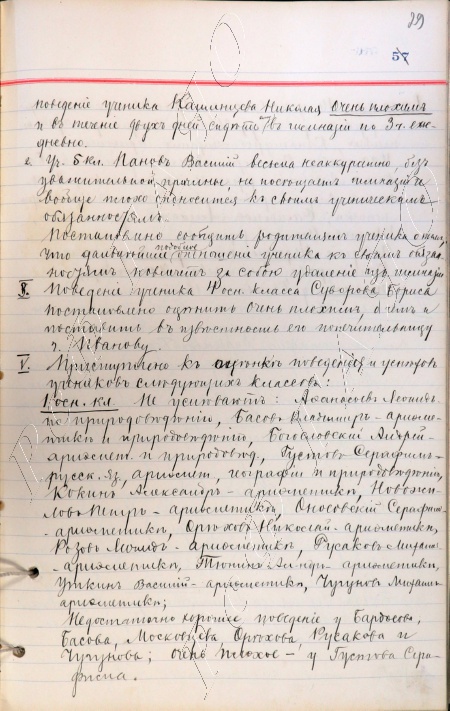 29
57
поведенiе ученика Кашинцева Николая очень плохимъ
и въ теченiе двухъ дней сидѣть въ гимназiи по 3 ч. еже-
дневно.
Уч. 5 кл. Пановъ Василiй весьма неаккуратно, безъ
уважительной причины, не посѣщаетъ гимназiи и
вообще плохо относится къ своимъ ученическимъ
обязанностямъ.
Постановлено сообщить родителямъ ученика о томъ,
что дальнѣйшее подобное отношенiе ученика къ своимъ обязан-
ностямъ повлечетъ за собою удаленiе изъ гимназiи
Поведенiе ученика 4 осн. класса Суворова Бориса
постановлено оцѣнить очень плохимъ, о чемъ и
поставить въ извѣстность его попечительницу
г. Иванову.
V. Приступлено къ оцѣнкѣ поведенiя и успѣховъ
учениковъ слѣдующихъ классовъ:
1 осн. кл. Не успѣваютъ: Аѳанасьевъ Леонидъ-
по природовѣдѣнiю, Басовъ Владимiръ - ариѳме-
тикѣ и природовѣдѣнiю, Богословскiй Андрей-
ариѳмет. и природовѣд., Густовъ Серафимъ-
русск. яз, ариѳмет, географiи и природовѣдѣнiю,
Кокинъ Александръ - ариѳметикѣ, Новожи-
ловъ Петръ - ариѳметикѣ, Оносовскiй Серафимъ
- ариѳметикѣ, Орѣховъ Николай - ариѳметикѣ,
Розовъ Леонидъ - ариѳметикѣ, Русаковъ Михаилъ
- ариѳметикѣ, ариѳметикѣ,
Уткинъ Василiй - ариѳметикѣ, Чугуновъ Михаилъ
ариѳметикѣ;
Недостаточно хорошее поведенiе у Бардосова,
Басова, Московцева, Орѣхова, Русакова и
Чугунова; очень плохое - у Густова Сера-
фима.